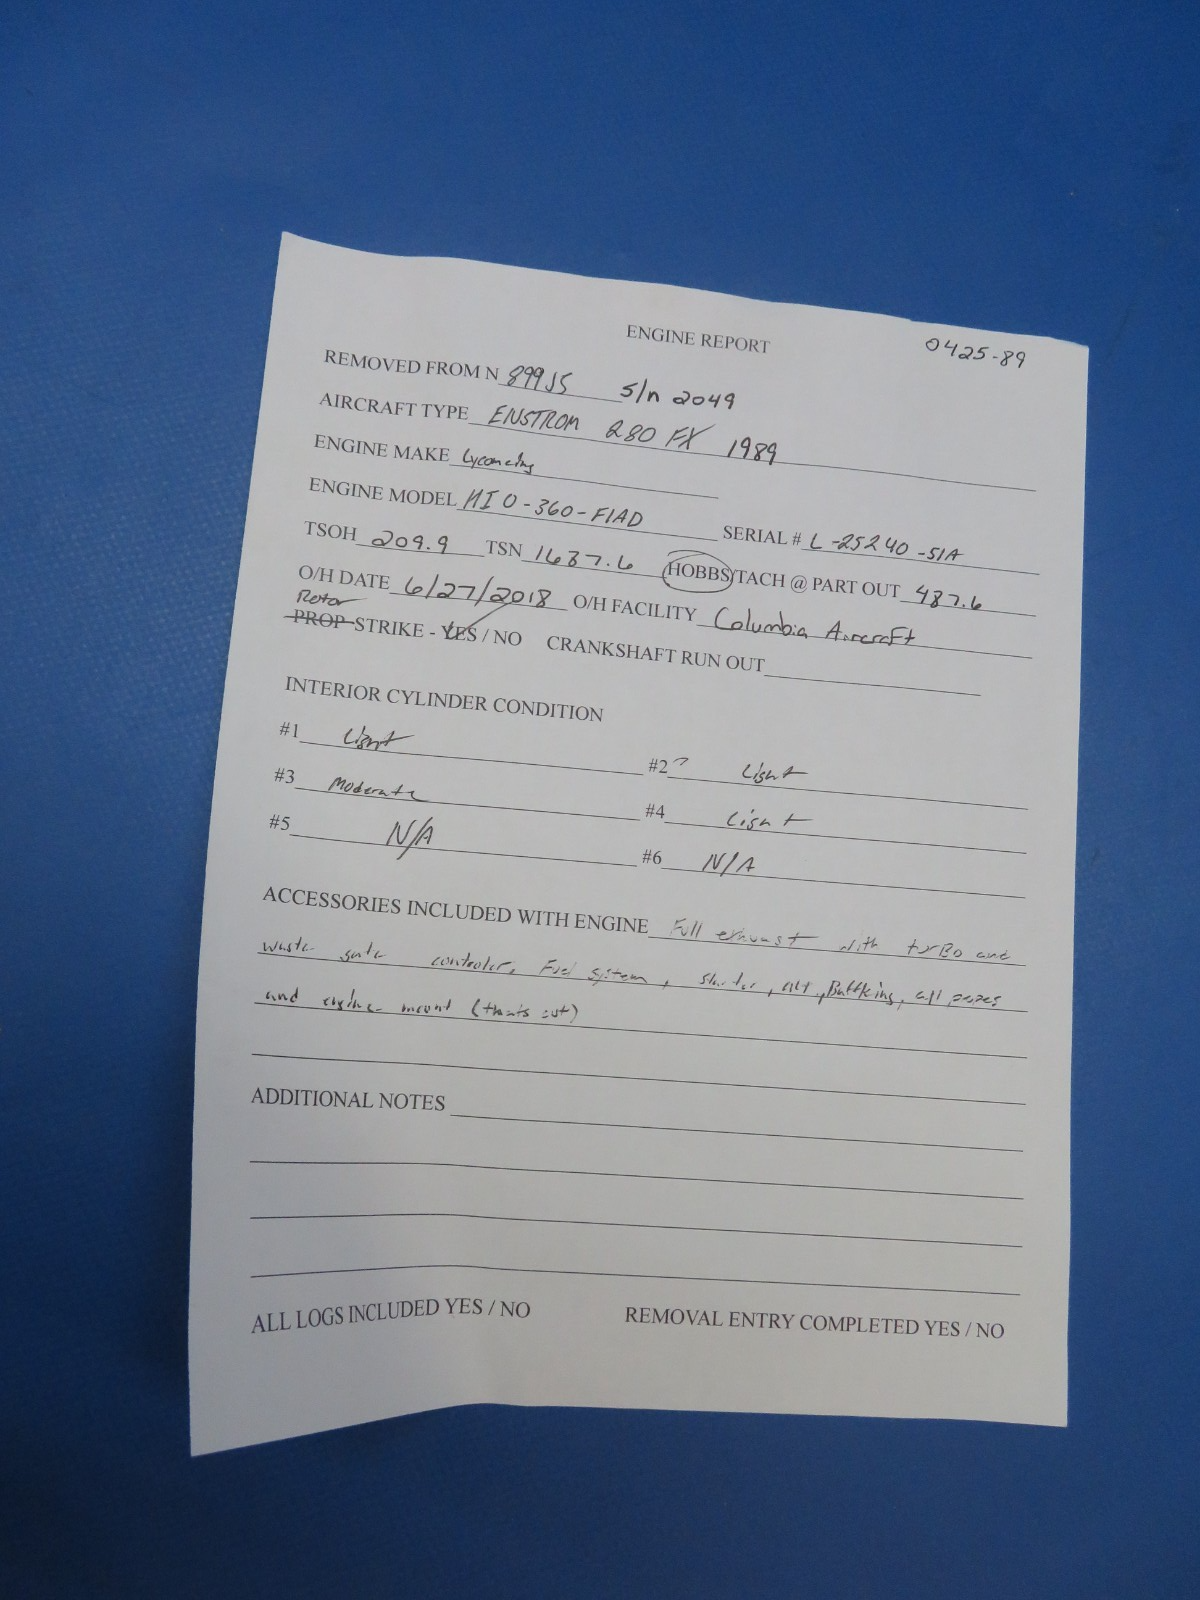 ENGINE REPORT 0425-89
REMOVED FROM N 899JS S/n 2049
AIRCRAFT TYPE ENSTROM 280 FX 1989
ENGINE MAKE Lycoming
ENGINE MODEL HIO-360-F1AD SERIAL # L-25240-51A
TSOH 209.9 TSN 1637.6 HOBBS/TACH @ PART OUT 487.6
O/H DATE 6/27/2018 O/H FACILITY Columbia Aircraft
Rotor
PROP STRIKE - YES / NO CRANKSHAFT RUN OUT
INTERIOR CYLINDER CONDITION
#1 Light #2 Light
#3 Moderate #4 Light
#5 N/A #6 N/A
ACCESSORIES INCLUDED WITH ENGINE Full exhaust with turbo and
waste gate controler, Fuel system, starter, alt, Baffling, all
and engine mount (thats cut)
ADDITIONAL NOTES
ALL LOGS INCLUDED YES / NO REMOVAL ENTRY COMPLETED YES / NO